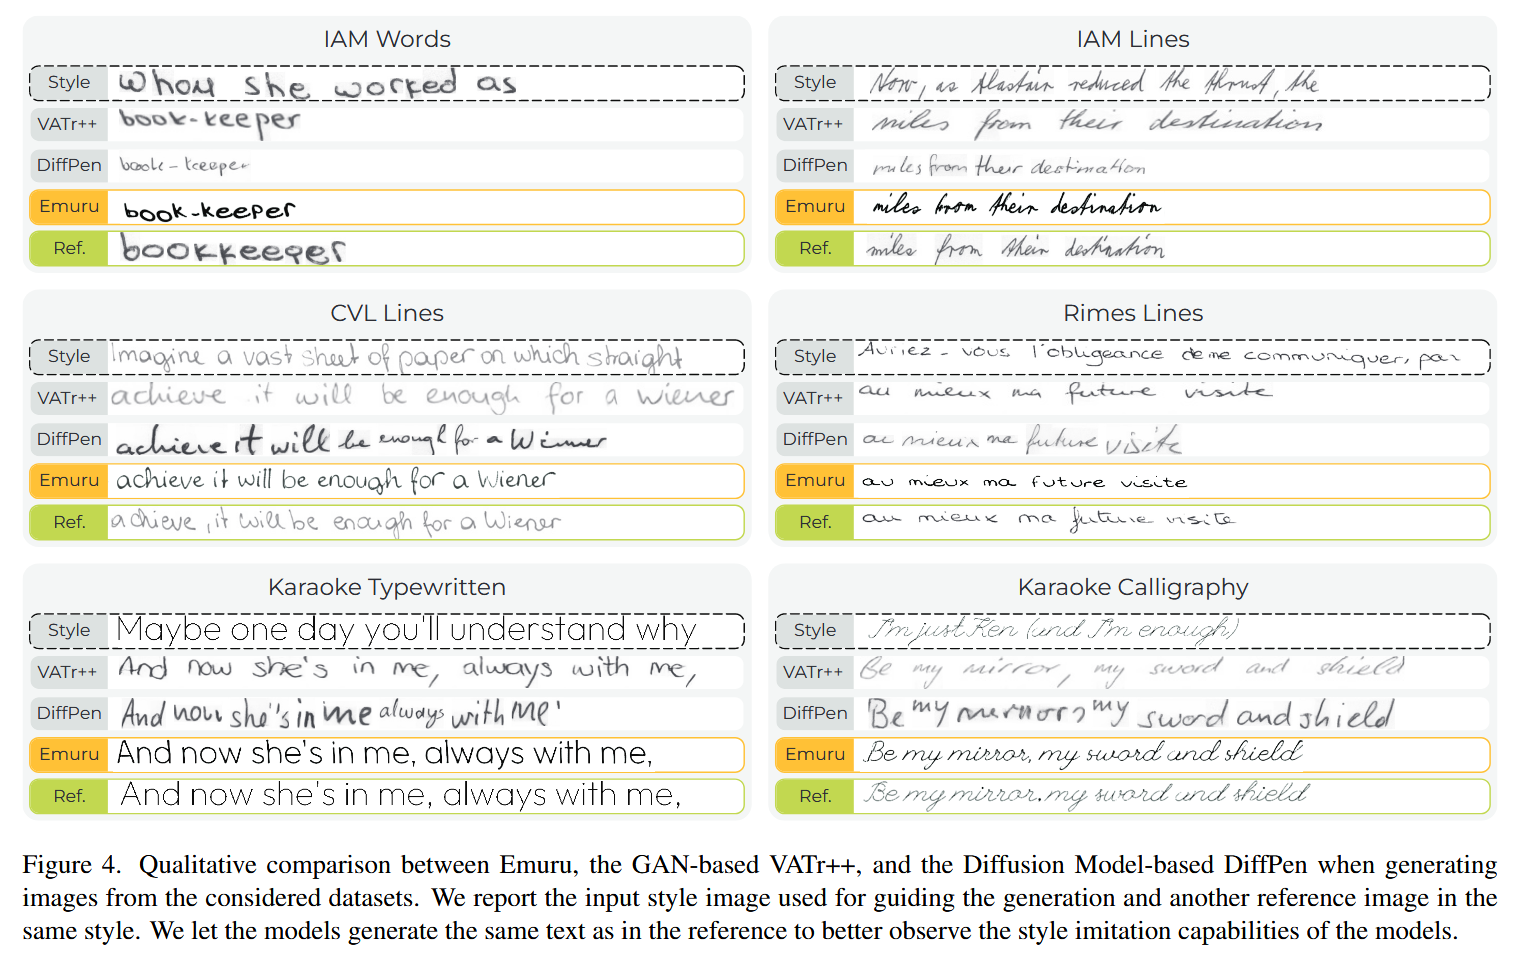 IAM Words
Style whom she worked as
VATr++ book-keeper
DiffPen book-keeper
Emuru book-keeper
Ref. bookkeeper
IAM Lines
Style Now, as Alastair reduced the thrust, the
VATr++ miles from their destination
DiffPen miles from their destination
Emuru miles from their destination
Ref. miles from their destination
CVL Lines
Style Imagine a vast sheet of paper on which straight
VATr++ achieve it will be enough for a Wiener
DiffPen achieve it will be enough for a Winner
Emuru achieve it will be enough for a Wiener
Ref. achieve, it will be enough for a Wiener
Rimes Lines
Style Auriez-vous l'obligeance de me communiquer, par
VATr++ au mieux ma future visite
DiffPen au mieux ma future visite
Emuru au mieux ma future visite
Ref. au mieux ma future visite
Karaoke Typewritten
Style Maybe one day you'll understand why
VATr++ And now she's in me, always with me,
DiffPen And now she''s in me always with me'
Emuru And now she's in me, always with me,
Ref. And now she's in me, always with me,
Karaoke Calligraphy
Style I'm just Ken (and I'm enough)
VATr++ Be my mirror, my sword and shield
DiffPen Be my my sword and shield
Emuru Be my mirror, my sword and shield
Ref. Be my mirror, my sword and shield
Figure 4. Qualitative comparison between Emuru, the GAN-based VATr++, and the Diffusion Model-based DiffPen when generating
images from the considered datasets. We report the input style image used for guiding the generation and another reference image in the
same style. We let the models generate the same text as in the reference to better observe the style imitation capabilities of the models.